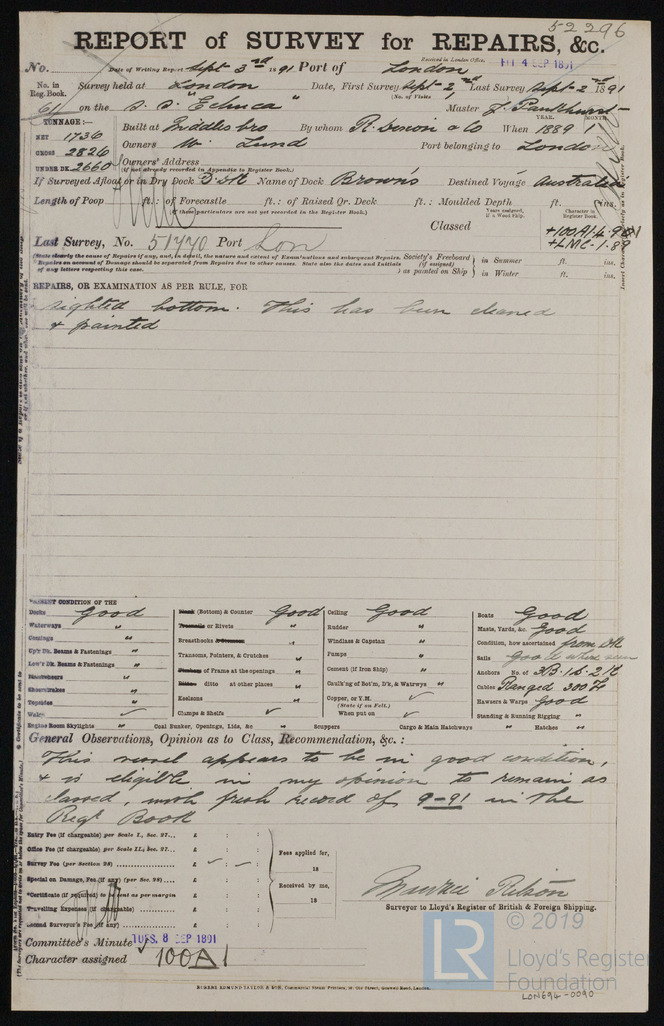 52296
REPORT of SURVEY for REPAIRS, &c.
No. Date of Writing Report Sept 3rd 1891 Port of London Received in London Office, FRI 4 SEP 1891
No. in Reg. Book. Survey held at London Date, First Survey Sept 2nd Last Survey Sept 2nd 1891
(No. of Visits 1)
61 on the S.S. "Echuca" Master J. Pankhurst
TONNAGE:— YEAR. MONTH.
NET 1736 Built at Middlesbro By whom R. Dixon & Co When 1889 1
GROSS 2826 Owners W. Lund Port belonging to London
UNDER DK. 2660 Owners' Address
(if not already recorded in Appendix to Register Book.)
If Surveyed Afloat or in Dry Dock D. Dk Name of Dock Brown's Destined Voyage Australia
Length of Poop ft.: of Forecastle ft.: of Raised Qr. Deck ft.: Moulded Depth ft. ins.
(if these particulars are not yet recorded in the Register Book.)
Classed Character in Register Book.
+100A1.
+LMC.1.89
Last Survey, No. 51770 Port Lon
(State clearly the cause of Repairs if any, and, in detail, the nature and extent of Examinations and subsequent Repairs.
Repairs on account of Damage should be separated from Repairs due to other causes. State also the dates and Initials
of any letters respecting this case.
Society's Freeboard (if assigned) as painted on Ship in Summer ft. ins.
in Winter ft. ins.
REPAIRS, OR EXAMINATION AS PER RULE, FOR
sighted bottom. This has been cleaned
& painted
PRESENT CONDITION OF THE
Decks Good
Waterways "
Comings "
Up'r Dk. Beams & Fastenings "
Low'r Dk. Beams & Fastenings "
Sheerstrakes
Topsides
Wales
Engine Room Skylights "
Plank (Bottom) & Counter Good
Treenails or Rivets "
Breasthooks "
Transoms, Pointers, & Crutches "
of Frame at the openings "
Ditto ditto at other places "
Keelsons "
Clamps & Shelfs
Coal Bunker, Openings, Lids, &c "
Ceiling Good
Rudder "
Windlass & Capstan "
Pumps "
Cement (if Iron Ship) "
Caulk'ng of Bot'm, D'k, & Waterways "
Copper, or Y.M.
(State if on Felt.)
When put on
Scuppers " Cargo & Main Hatchways "
Boats Good
Masts, Yards, &c. Good
Condition, how ascertained from Dk
Sails Good where seen
Anchors No. of 3B.1S.2K
Cables Ranged 300 F
Hawsers & Warps Good
Standing & Running Rigging "
Hatches "
General Observations, Opinion as to Class, Recommendation, &c. :
This vessel appears to be in good condition,
& is eligible in my opinion to remain as
classed, with fresh record of 9-91 in the
Regr Book
Entry Fee (if chargeable) per Scale I., Sec. 27... £ : :
Office Fee (if chargeable) per Scale II., Sec. 27... £ : :
Survey Fee (per Section 28) £ : :
Special on Damage, Fee (if any) (per Sec. 28) £ : :
*Certificate (if required) to be sent as per margin £ : :
Travelling Expenses (if chargeable) £ : :
Second Surveyor's Fee (if any) £ : :
Fees applied for,
18
Received by me,
18
Surveyor to Lloyd's Register of British & Foreign Shipping.
Committee's Minute TUES. 8 SEP 1891
Character assigned 100A1
ROBERT EDMUND TAYLOR & SON, Commercial Steam Printers, 19, Old Street, Goswell Road, London.
© 2019
LR
Lloyd's Register
Foundation
LON694-0090